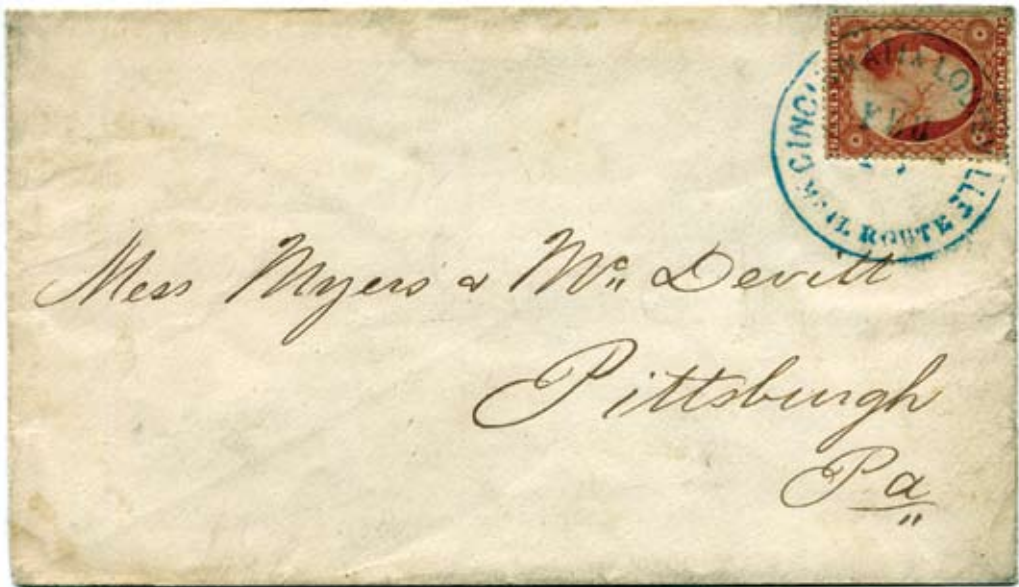 CINCINNATI & LOUISVILLE
MAIL ROUTE
Mess Myers & Mc. Devitt
Pittsburgh
Pa